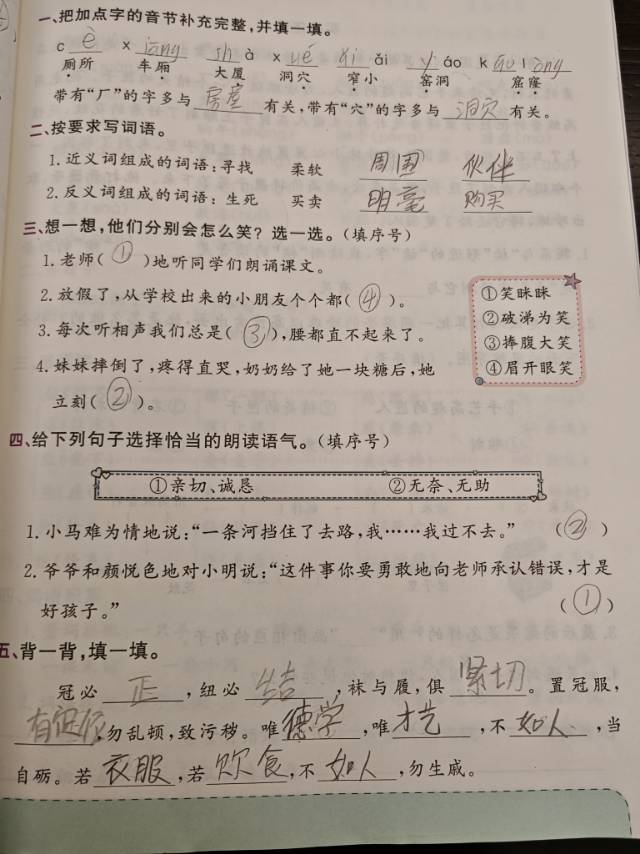 一、把加点字的音节补充完整,并填一填。
c è x iāng sh à x ué ǎi y áo k l óng
厕所 车厢 大厦 洞穴 窄小 窑洞 窟窿
带有“厂”的字多与 房屋 有关,带有“穴”的字多与 洞穴 有关。
二、按要求写词语。
1.近义词组成的词语:寻找 柔软 周围 伙伴
2.反义词组成的词语:生死 买卖 明 购买
三、想一想,他们分别会怎么笑?选一选。(填序号)
1.老师( ① )地听同学们朗诵课文。
2.放假了,从学校出来的小朋友个个都( ④ )。
3.每次听相声我们总是( ③ ),腰都直不起来了。
4.妹妹摔倒了,疼得直哭,奶奶给了她一块糖后,她
立刻( ② )。
①笑眯眯
②破涕为笑
③捧腹大笑
④眉开眼笑
四、给下列句子选择恰当的朗读语气。(填序号)
①亲切、诚恳 ②无奈、无助
1.小马难为情地说:“一条河挡住了去路,我……我过不去。” ( ② )
2.爷爷和颜悦色地对小明说:“这件事你要勇敢地向老师承认错误,才是
好孩子。” ( ① )
五、背一背,填一填。
冠必 正 ,纽必 结 ,袜与履,俱 紧切 。置冠服,
有定位 ,勿乱顿,致污秽。唯 德学 ,唯 才艺 ,不 如人 ,当
自砺。若 衣服 ,若 饮食 ,不 如人 ,勿生戚。